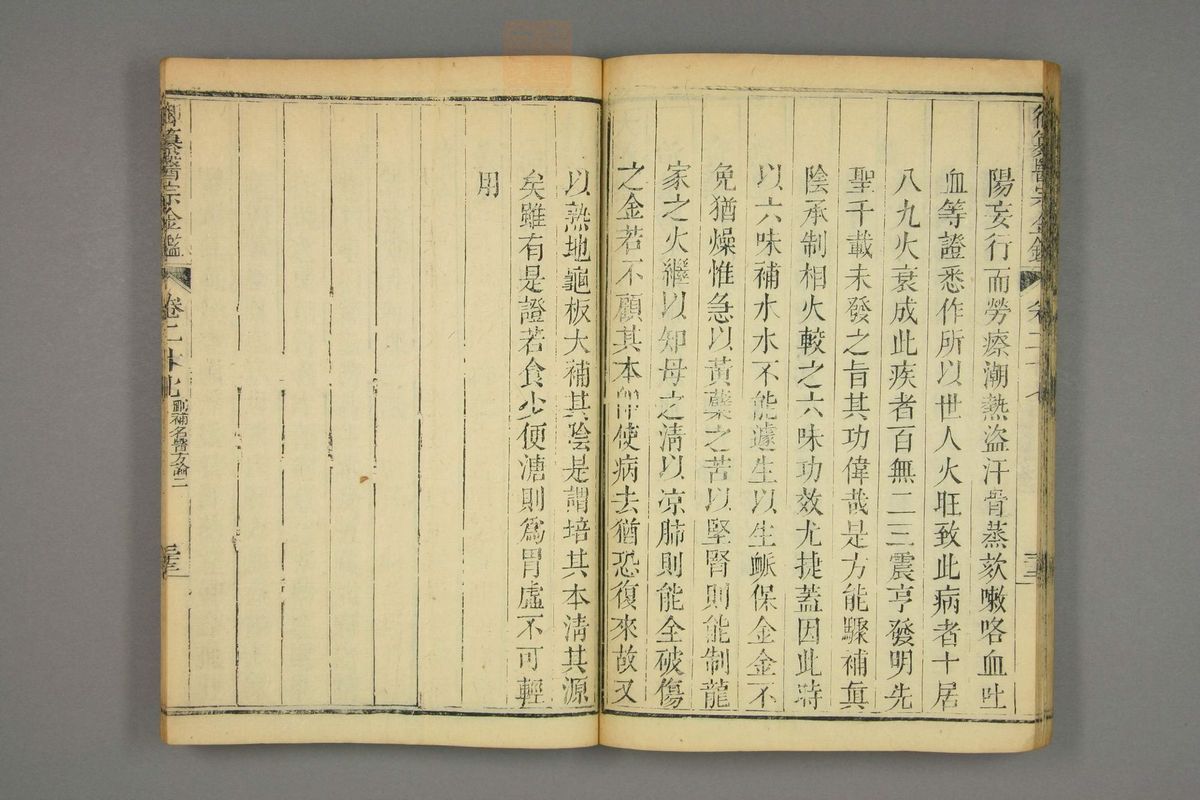 御纂醫宗金鑑
卷二十七
陽妄行而勞瘵潮熱盜汗骨蒸欬嗽咯血吐
血等證悉作所以世人火旺致此病者十居
八九火衰成此疾者百無二三震亨發明先
聖千載未發之旨其功偉哉是方能驟補眞
陰承制相火較之六味功效尤捷蓋因此時
以六味補水水不能遽生以生脈保金金不
免猶燥惟急以黃蘗之苦以堅腎則能制龍
家之火繼以知母之淸以凉肺則能全破傷
之金若不顧其本卽使病去猶恐復來故又
以熟地龜板大補其陰是謂培其本淸其源
矣雖有是證若食少便溏則爲胃虛不可輕
用
御纂醫宗金鑑
卷二十七
刪補名醫方論二
三十三